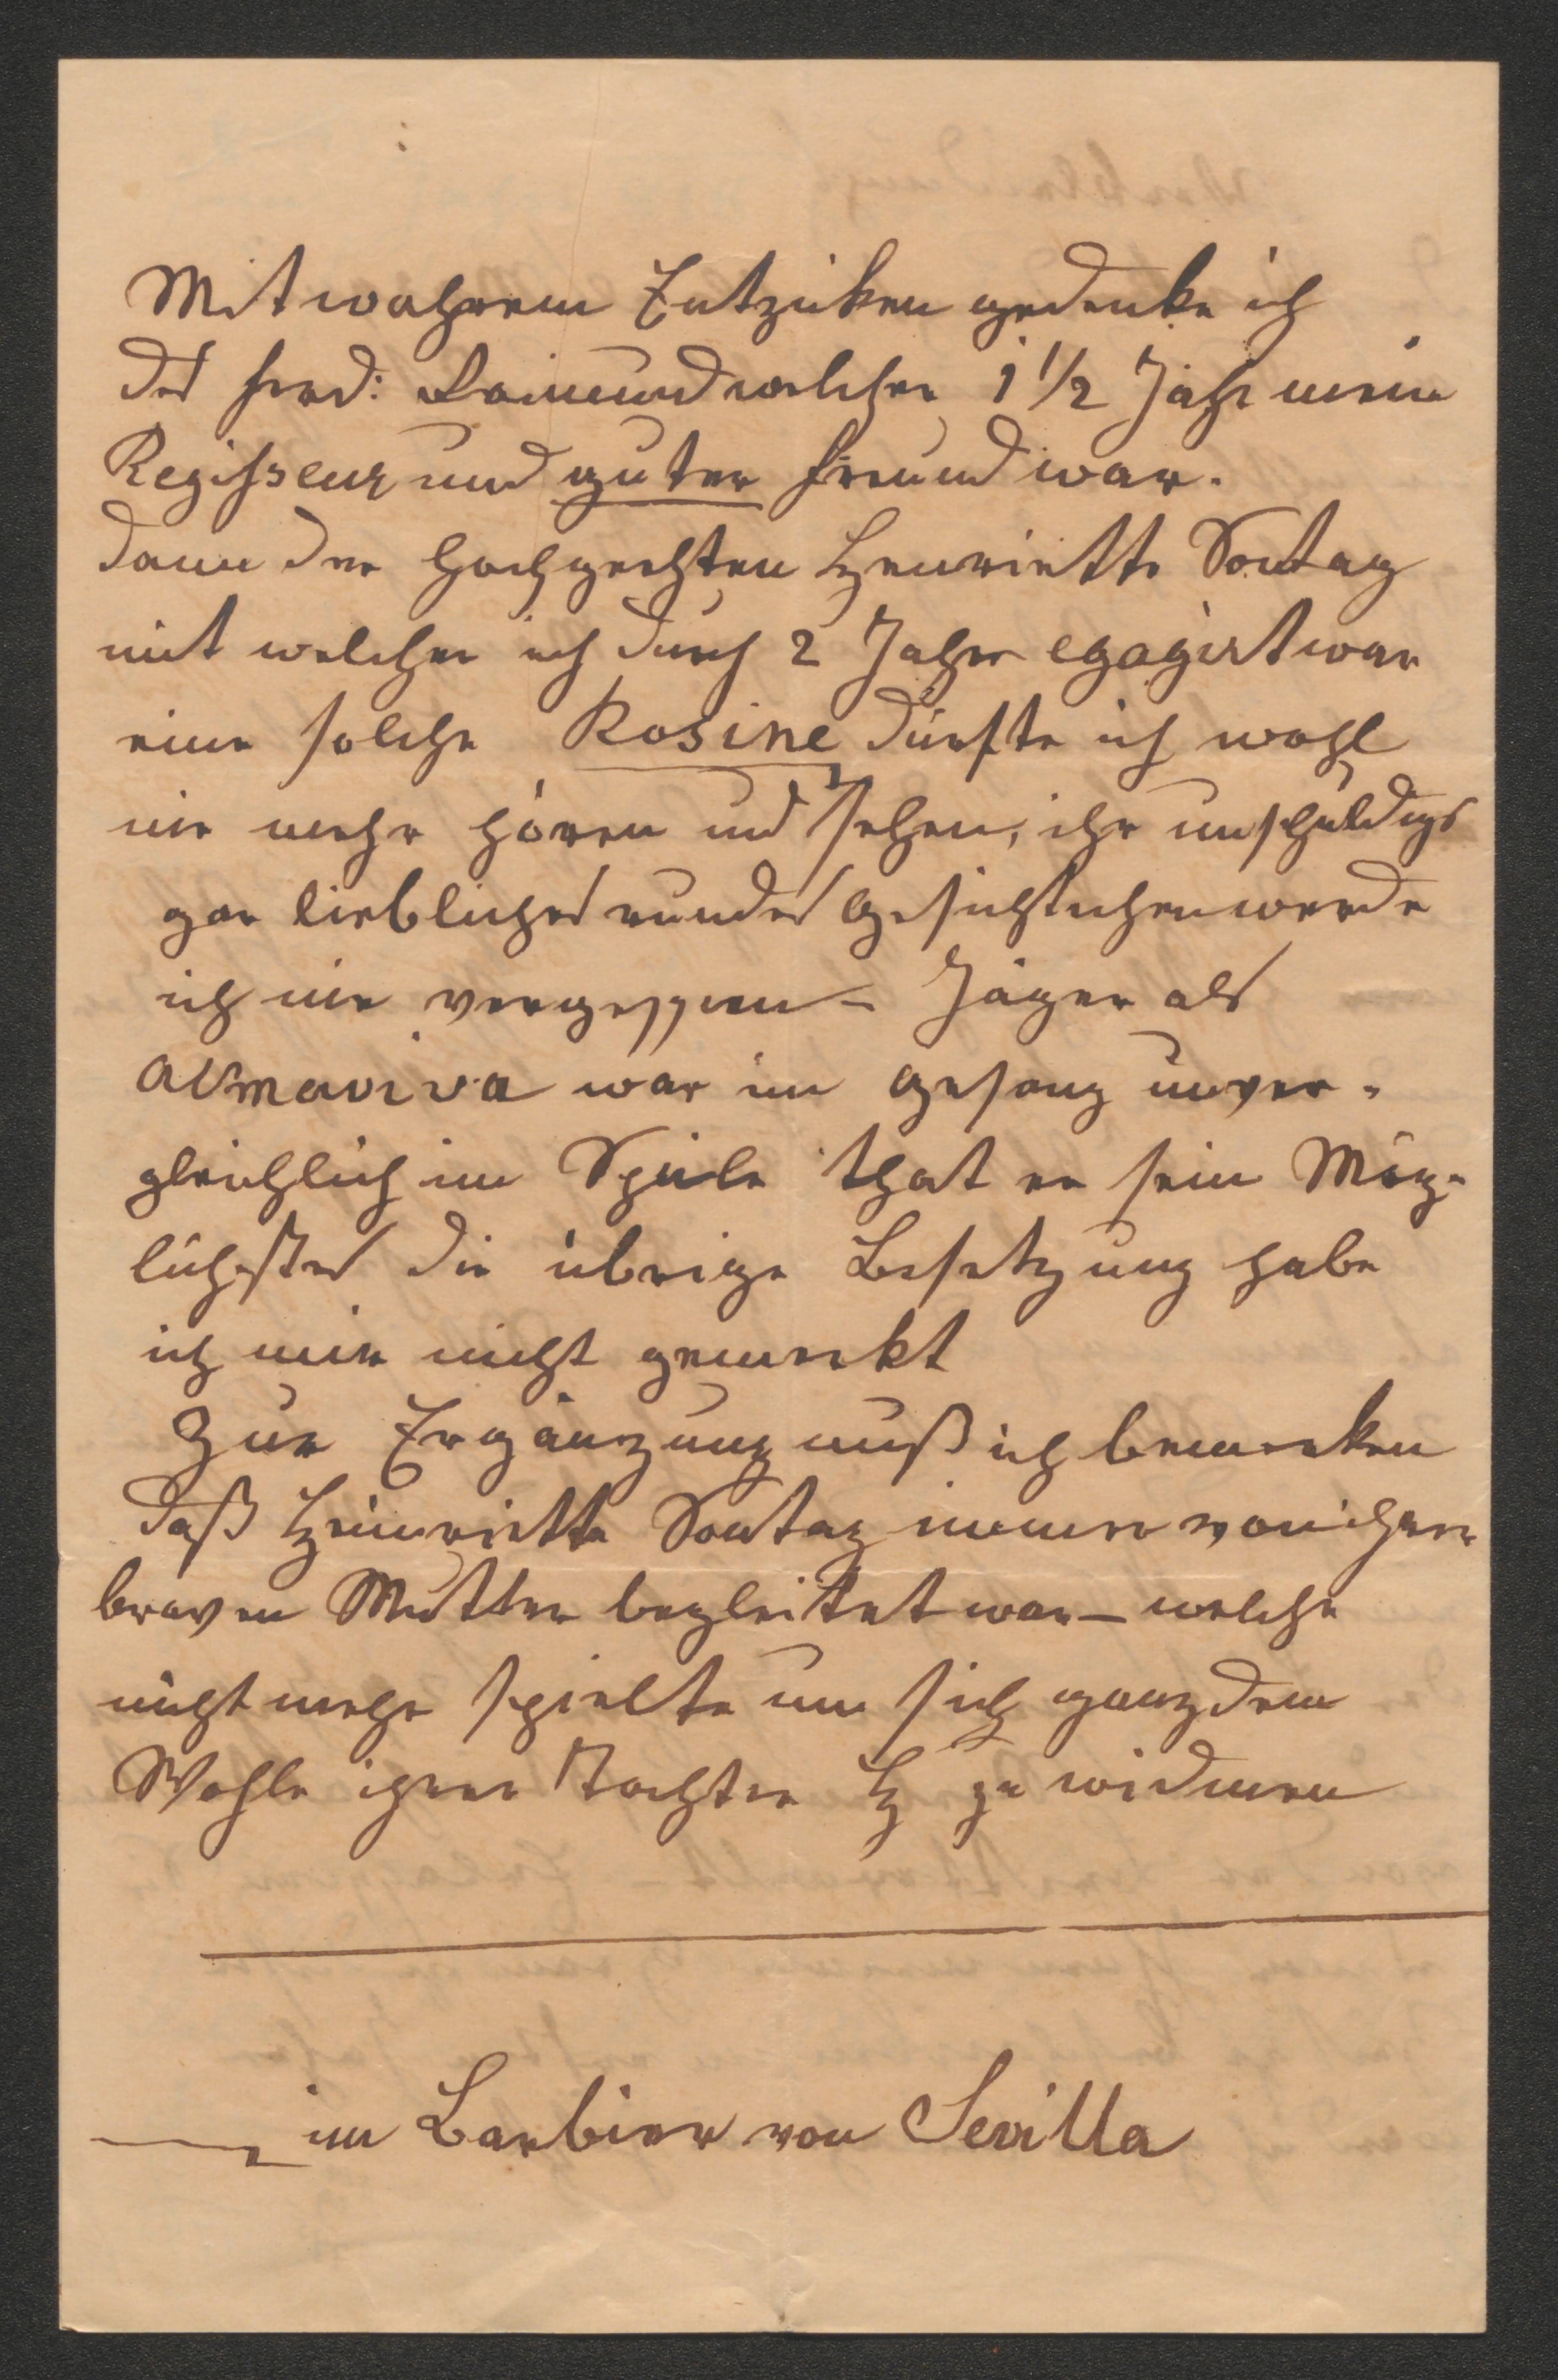 Mit wahrem Entzüken gedenke ich
des Ferd: Raimund welcher 1 1/2 Jahr mein
Regisseur und guter Freund war.
dann der hochgeehrten Henriette Sontag
mit welcher ich durch 2 Jahre egagirt war
eine solche Rosine dürfte ich wohl
nie mehr hören und sehen, ihr unschuldigs
gar liebliches rundes Gesichtchen werde
ich nie vergessen – Jäger als
Almaviva war im Gesang unver-
gleichlich im Spiele that er sein Mög-
lichstes die übrige Besetzung habe
ich mir nicht gemerkt
Zur Ergänzung muß ich bemerken
daß Heinriette Sontag immer von ihrer
braven Mutter begleitet war – welche
nicht mehr spielte um sich ganz dem
Wohle ihrer Tochter H zu widmen
im Barbier von Sevilla